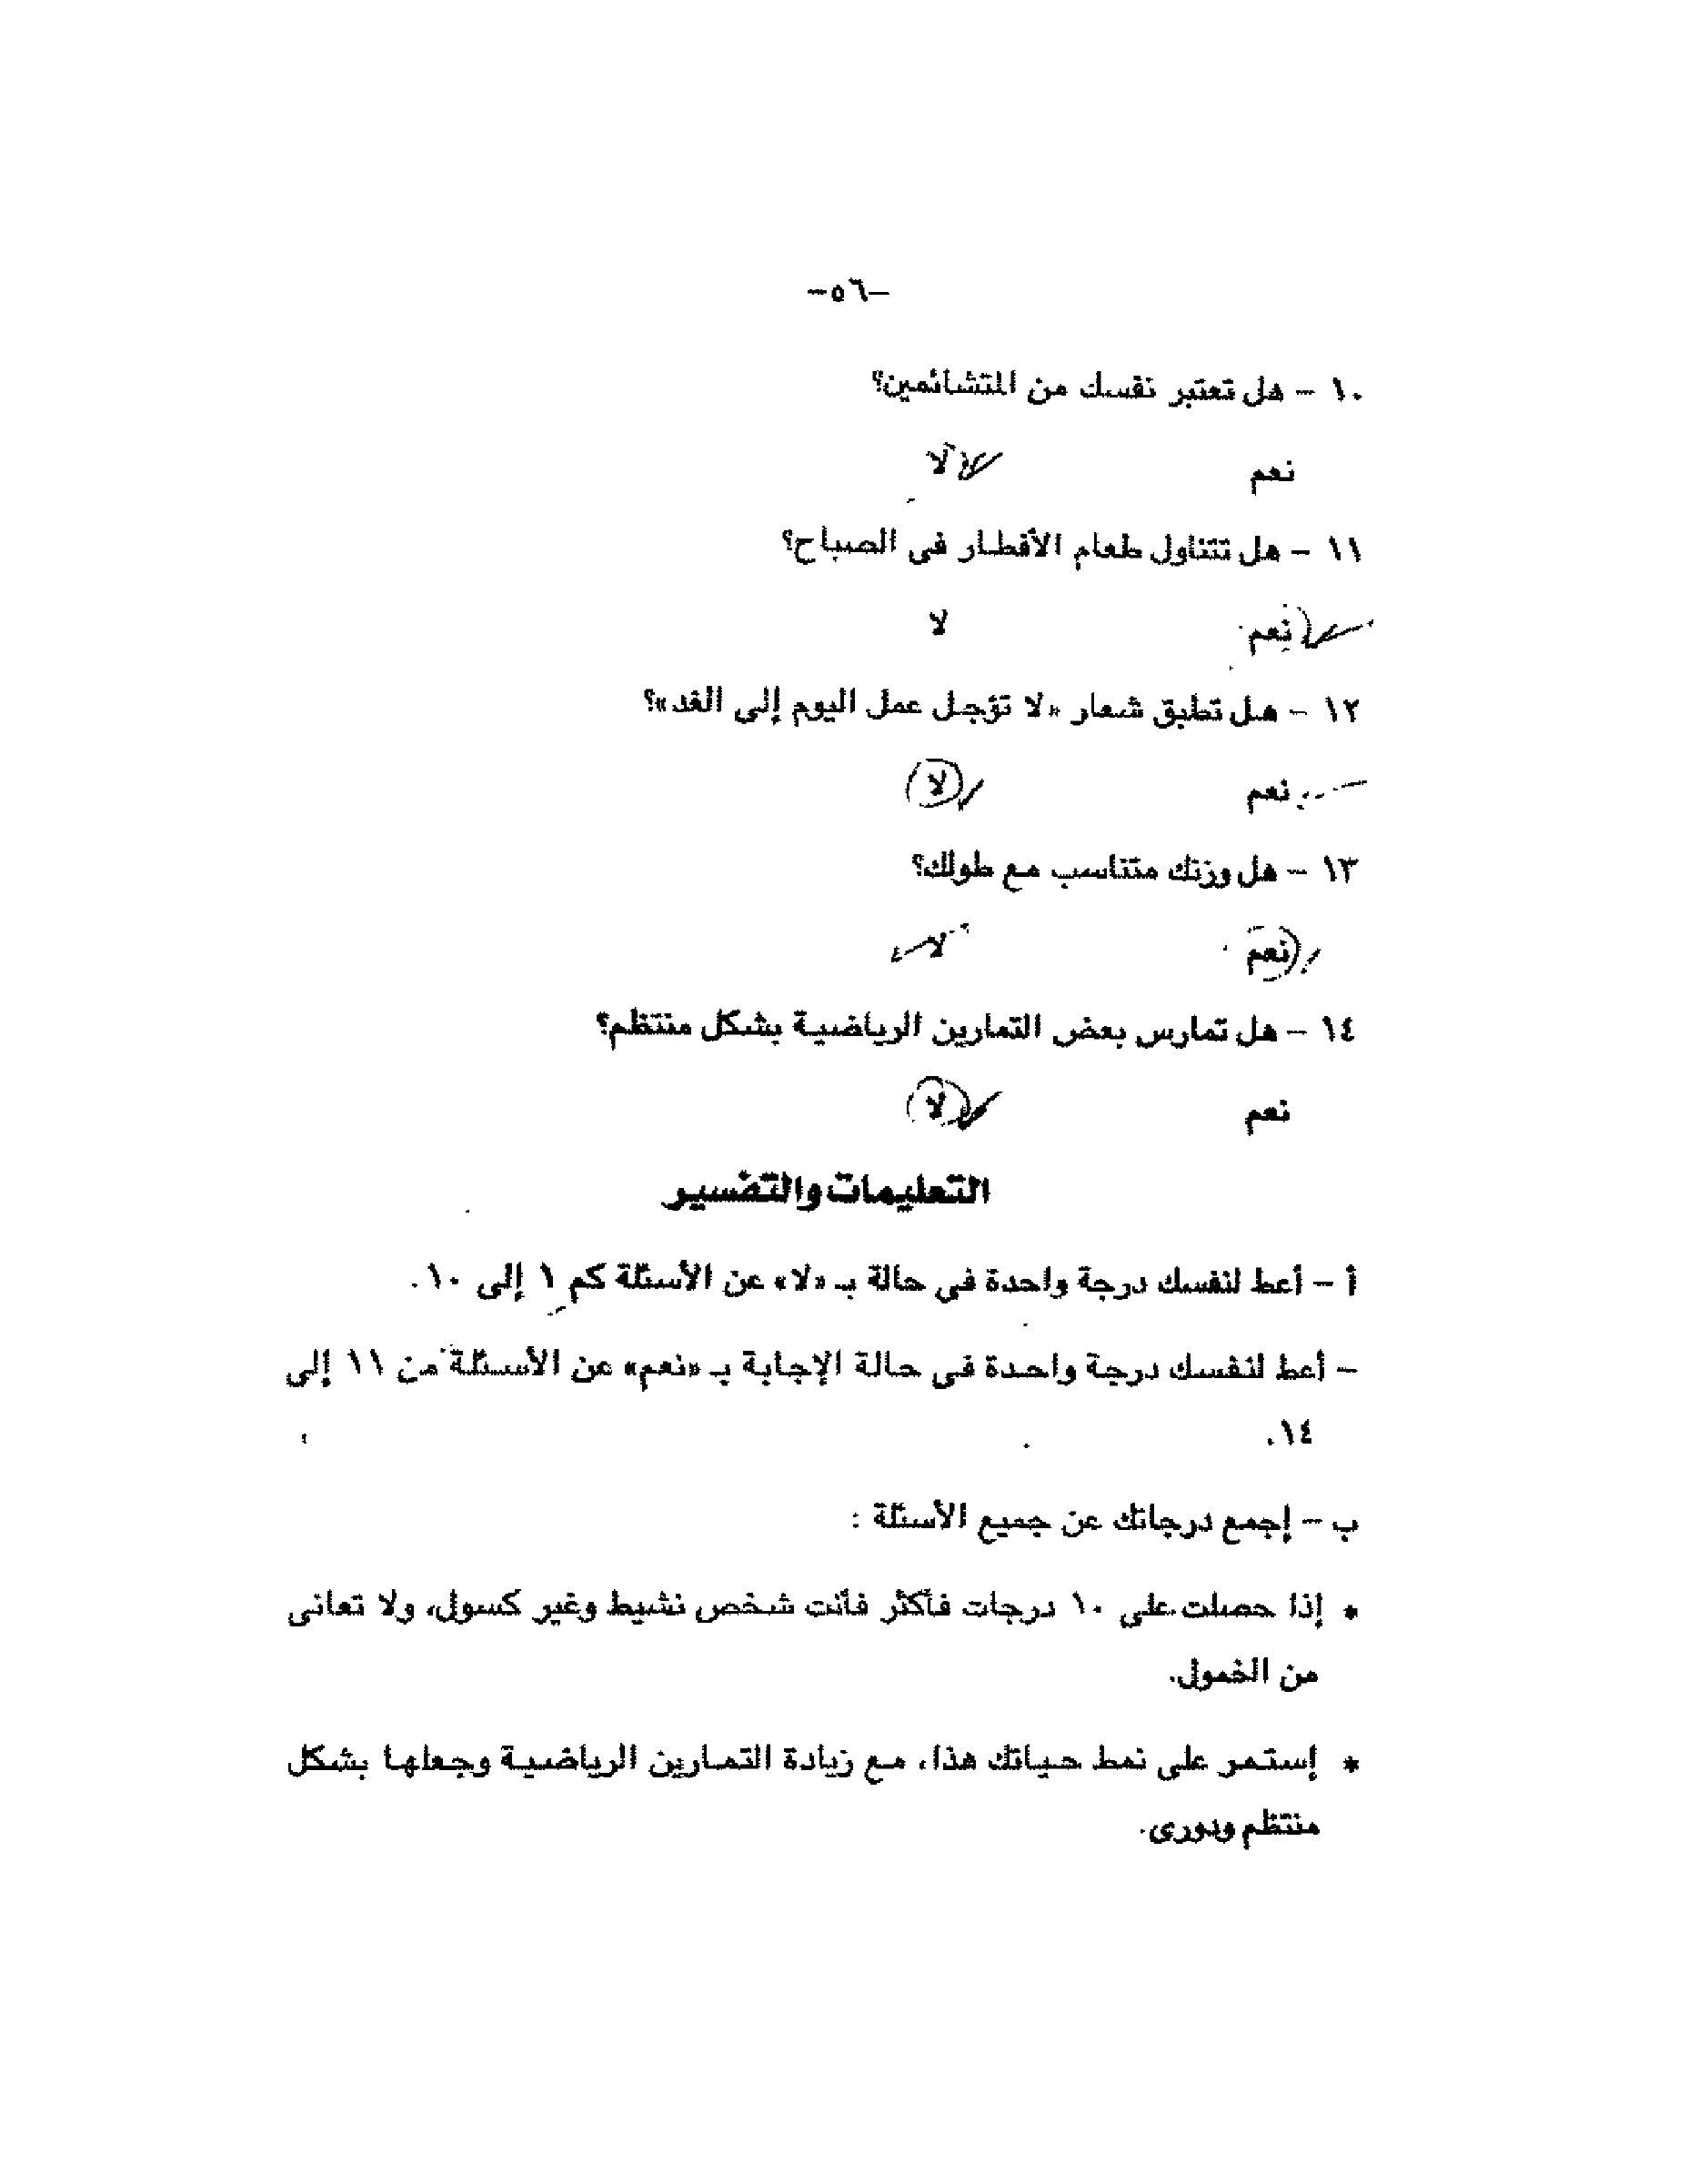 -٥٦-
١٠ - هل تعتبر نفسك من المتشائمين؟
نعم لا
١١ - هل تتناول طعام الأفطار فى الصباح؟
نعم لا
١٢ - هل تطبق شعار «لا تؤجل عمل اليوم إلى الغد»؟
نعم لا
١٣ - هل وزنك متناسب مع طولك؟
نعم لا
١٤ - هل تمارس بعض التمارين الرياضية بشكل منتظم؟
نعم لا
التعليمات والتفسير
أ - أعط لنفسك درجة واحدة فى حالة بـ «لا» عن الأسئلة كم ١ إلى ١٠.
- أعط لنفسك درجة واحدة فى حالة الإجابة بـ «نعم» عن الأسئلة من ١١ إلى
١٤.
ب - إجمع درجاتك عن جميع الأسئلة :
* إذا حصلت على ١٠ درجات فأكثر فأنت شخص نشيط وغير كسول، ولا تعانى
من الخمول.
* إستمر على نمط حياتك هذا، مع زيادة التمارين الرياضية وجعلها بشكل
منتظم ودورى.